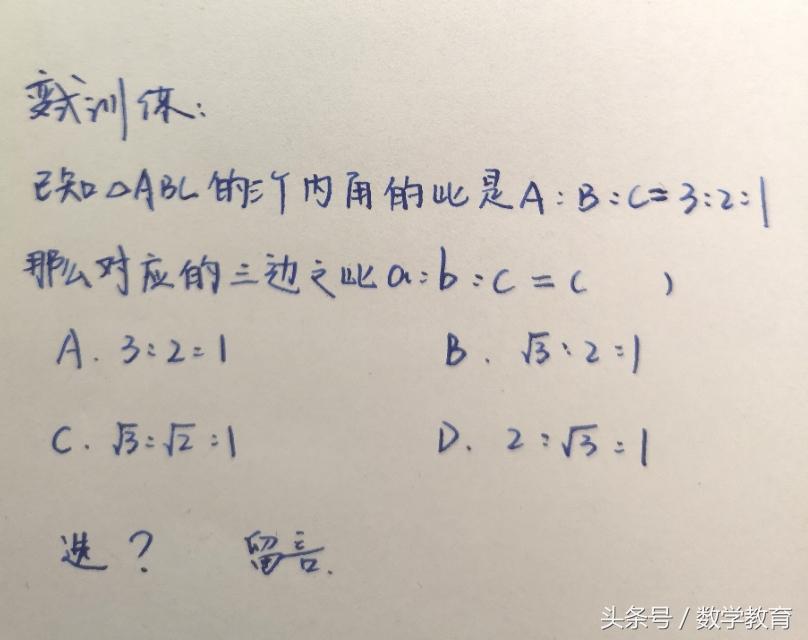 变式训练:
已知△ABC的三个内角的比是A:B:C=3:2:1
那么对应的三边之比a:b:c=( )
A. 3:2:1 B. √3:2:1
C. √3:√2:1 D. 2:√3:1
选? 留言.
头条号 / 数学教育